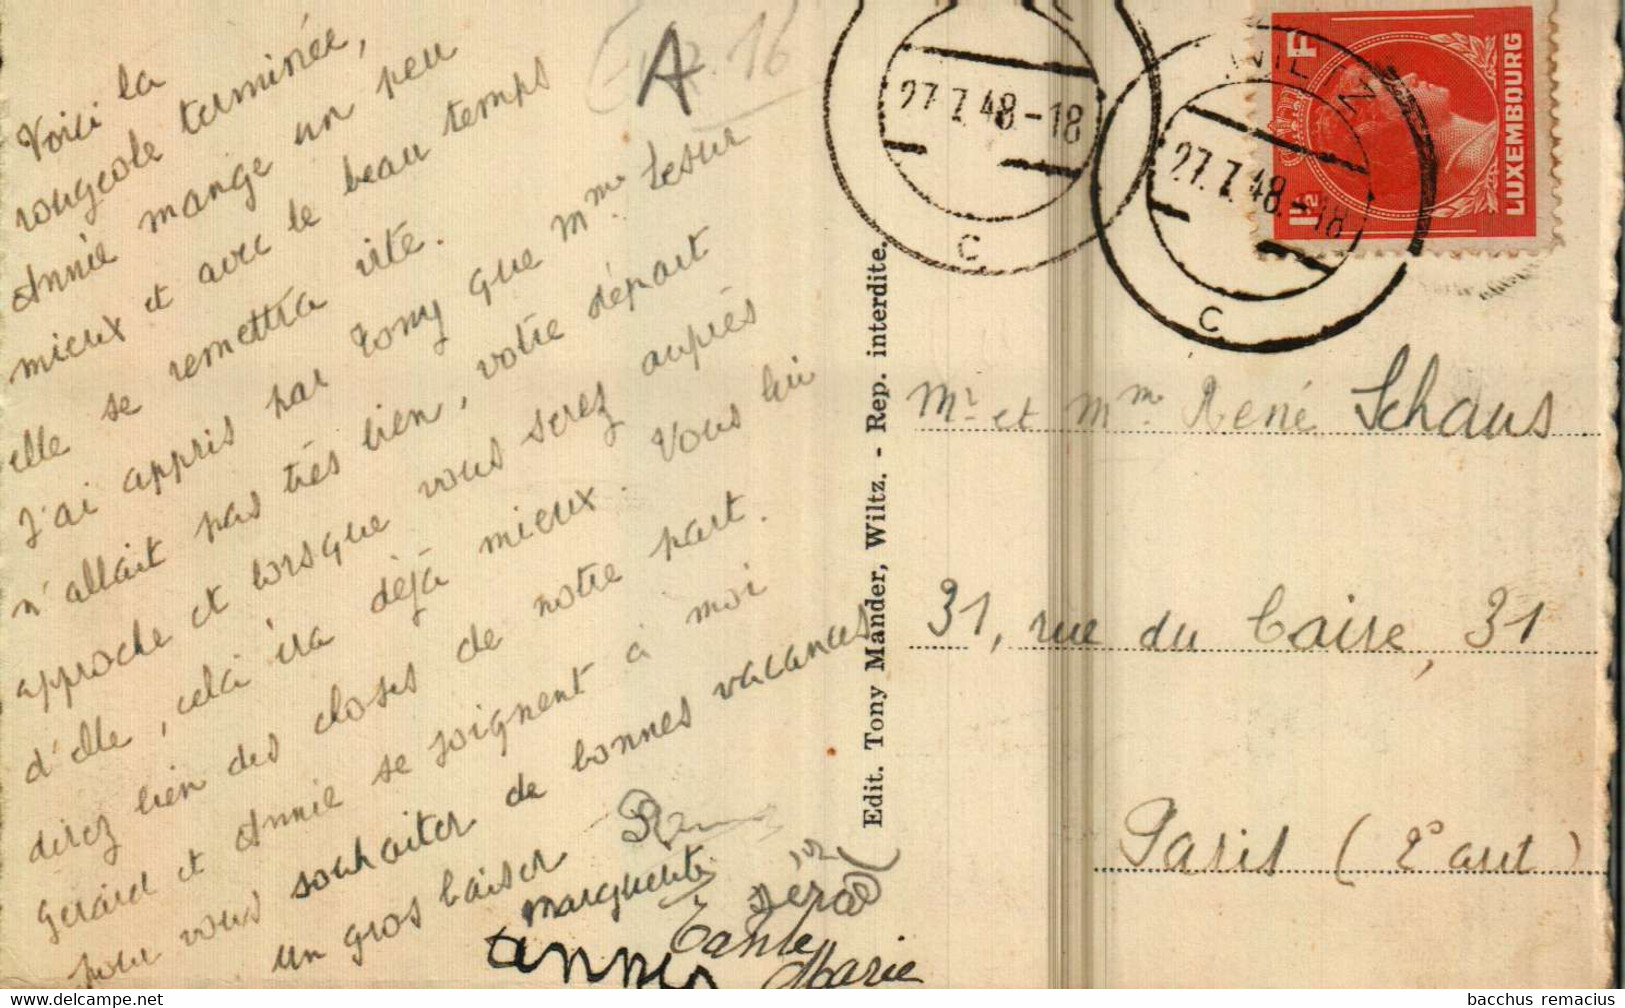 Voici la
rougeole terminée,
Annie mange un peu
mieux et avec le beau temps
elle se remettra vite.
J'ai appris par Tony que Mme Lesur
n'allait pas très bien, votre départ
approche et lorsque vous serez auprès
d'elle, cela ira déjà mieux. Vous lui
direz bien des choses de notre part.
Gérard et Annie se joignent à moi
pour vous souhaiter de bonnes vacances
un gros baiser
Marguerite
Gérard
Annie
Tante
Marie
A
Edit. Tony Mander, Wiltz. - Rep. interdite.
27.7.48.-18
C
27.7.48.-18
C
1½ F
LUXEMBOURG
Mr et Mme René Schaus
31, rue du Caire, 31
Paris (2e arrt)
bacchus remacius